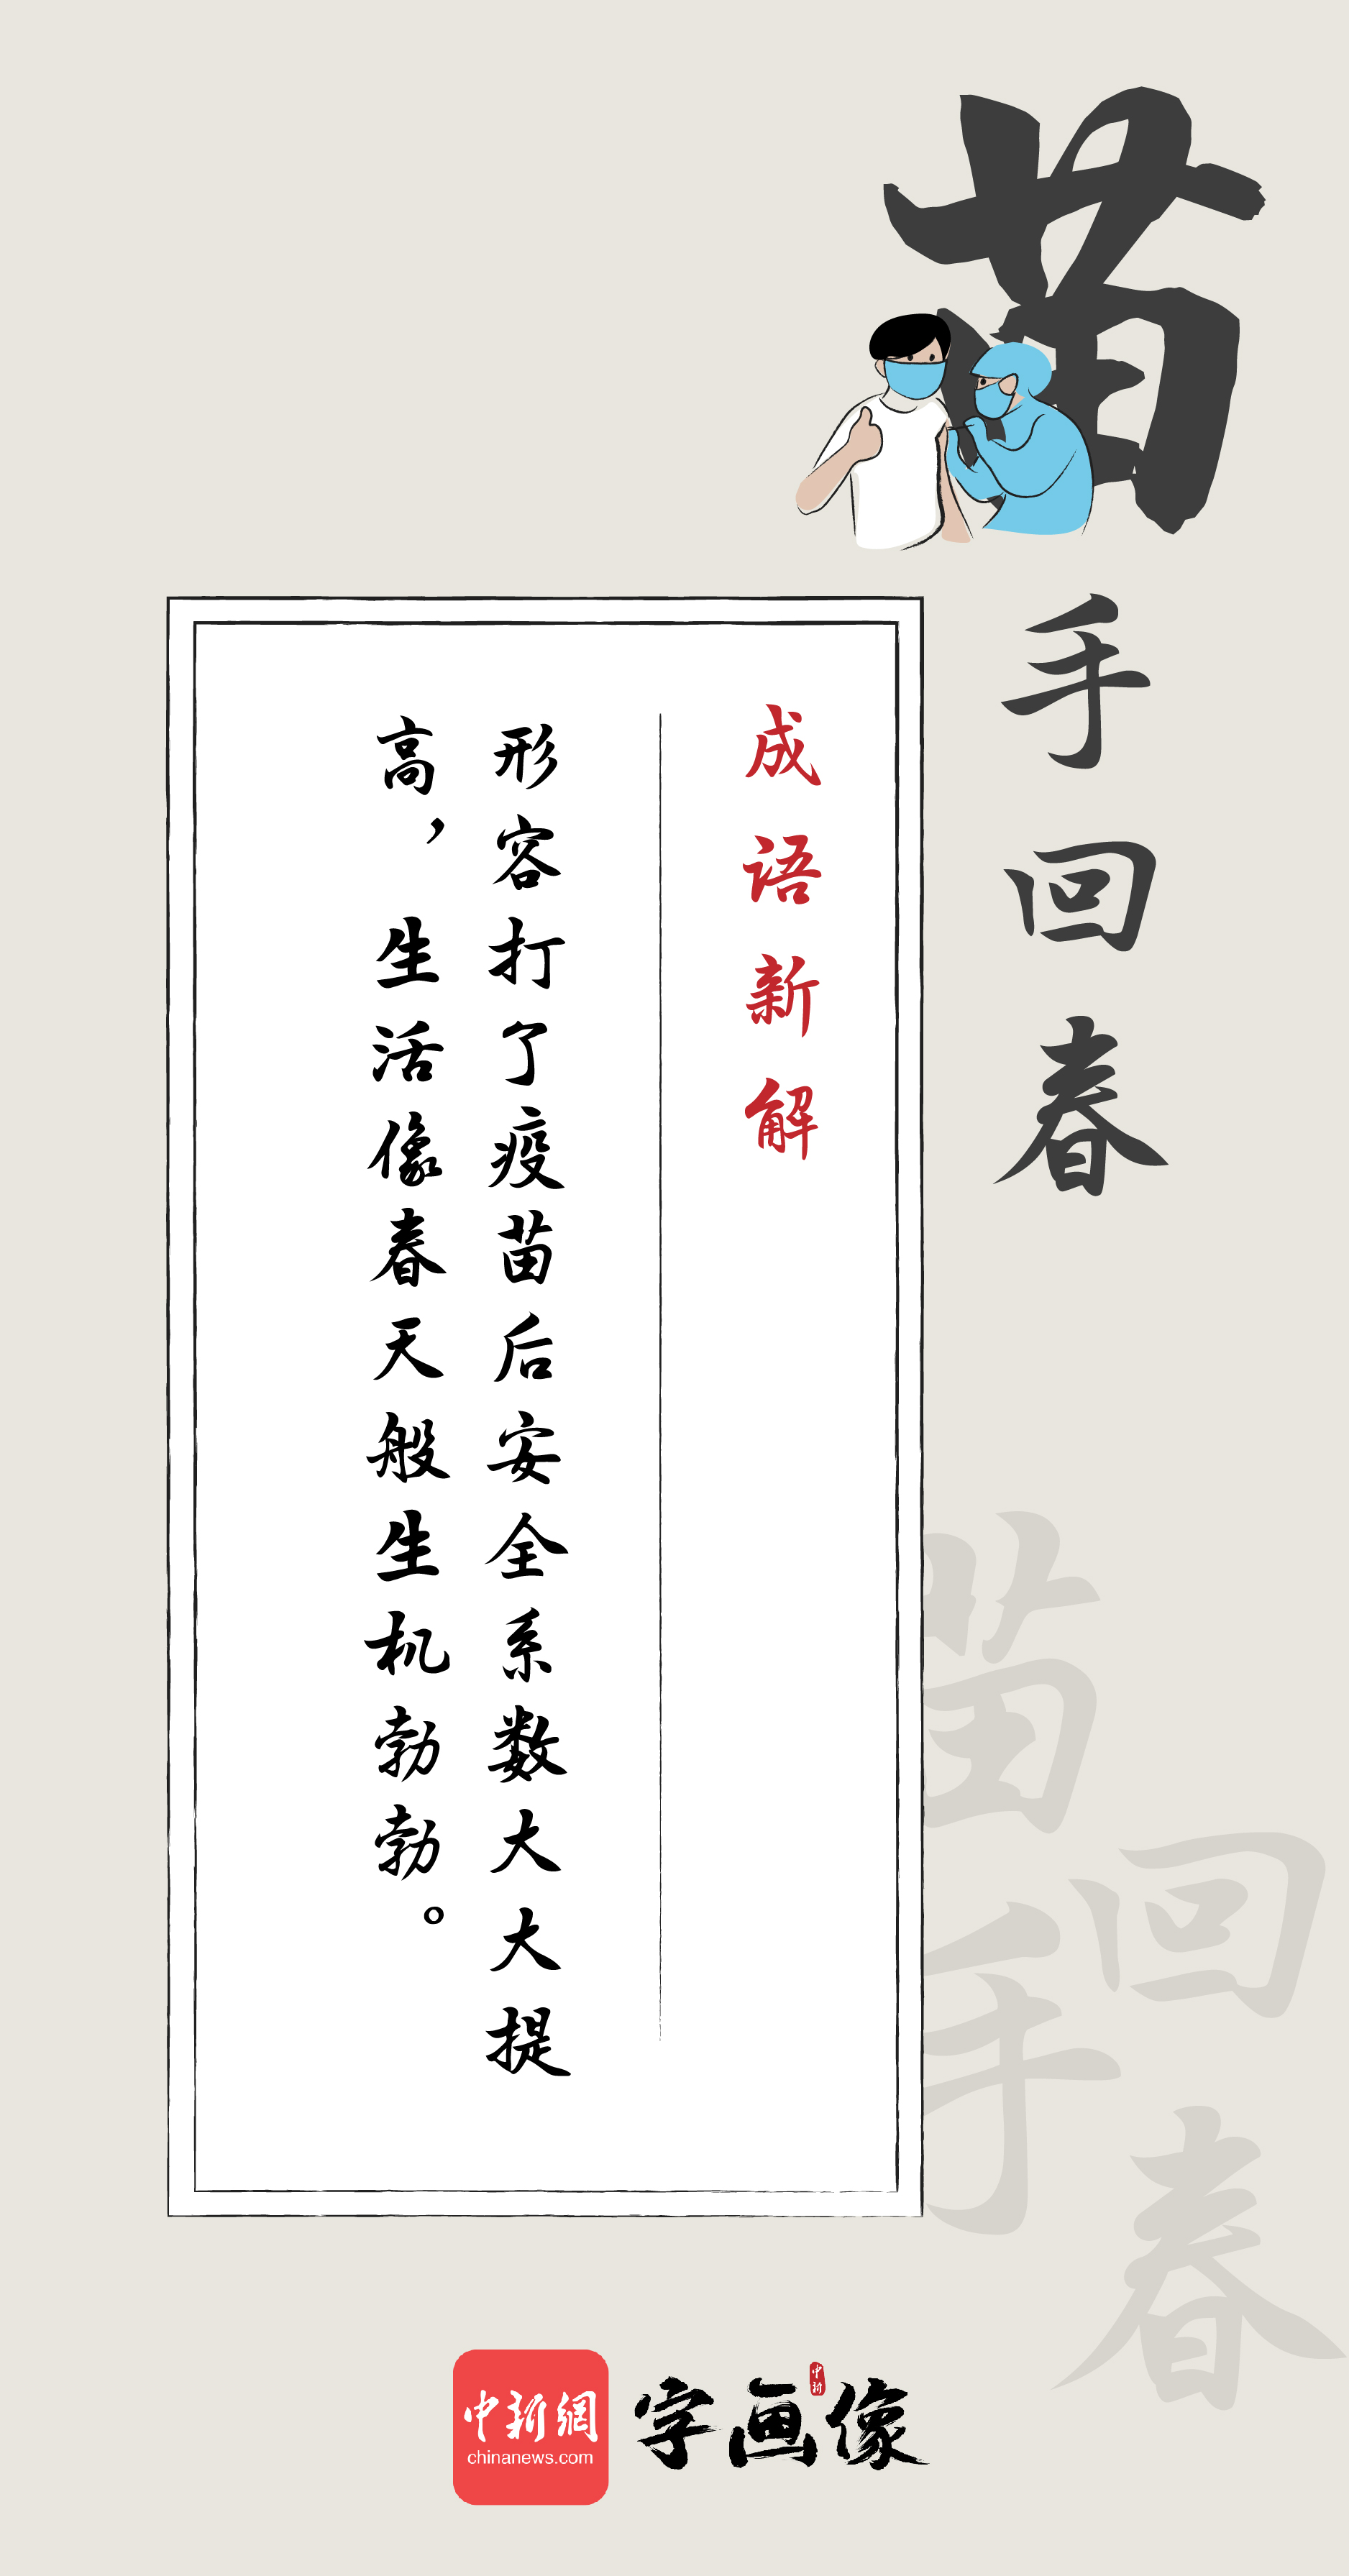 苗手回春
成语新解
形容打了疫苗后安全系数大大提
高，生活像春天般生机勃勃。
苗手
回春
中新網
chinanews.com
字画像
中新